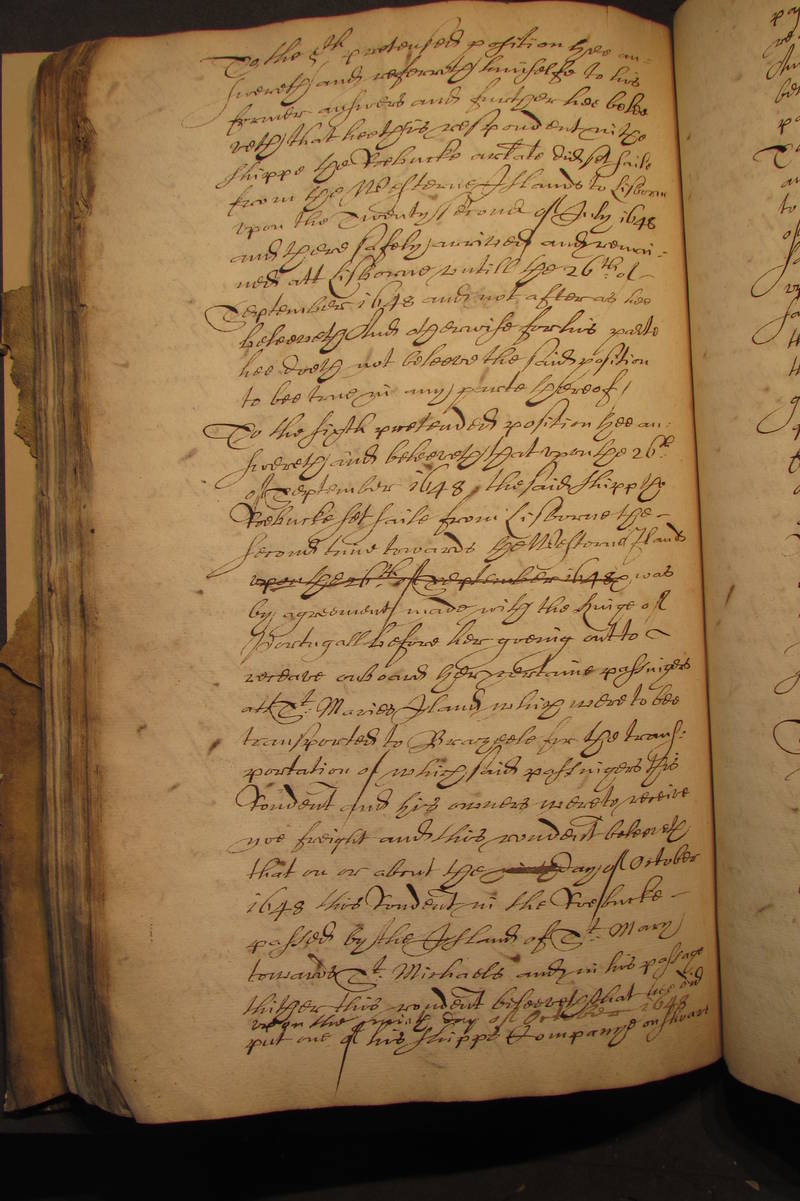 To the 5th pretensed position hee an=
swereth and referreth himselfe to his
former answers and further hee belee
veth that hee this respondent in the
shippe the Roebucke arlate did set saile
from the Westerne Islands to Lisborne
upon the Twenty second of July 1648
and there safely arrived and remai=
ned att Lisborne untill the 26th. of
September 1648 and not after as hee
beleeveth And otherwise for his parte
hee doeth not beleeve the said position
to bee true in any parte thereof /
To the sixth pretended position hee an=
swereth and beleeveth that upon the 26th
of September 1648 the said shipp the
Roebucke set saile from Lisborne the
second time towards the Westorne Ilands
upon the 26th of September 1648 was
by agreement made with the Kinge of
Portugall before her goeing out to
receave onboard her certaine passingers
att St. Maries Iland which were to bee
transported to Brazeele for the trans=
portation of which said passingers this
Rondent and his owners were to receive
noe freight and this rondent beleeveth
that on or about the day of October
1648 this Rondent in the Roebucke
passed by the Island of St. Mary
towards St. Michaels and in his passage
thither this rondent beleeveth that hee did
upon the day of October 1648
put one of his shipps Company on shoare